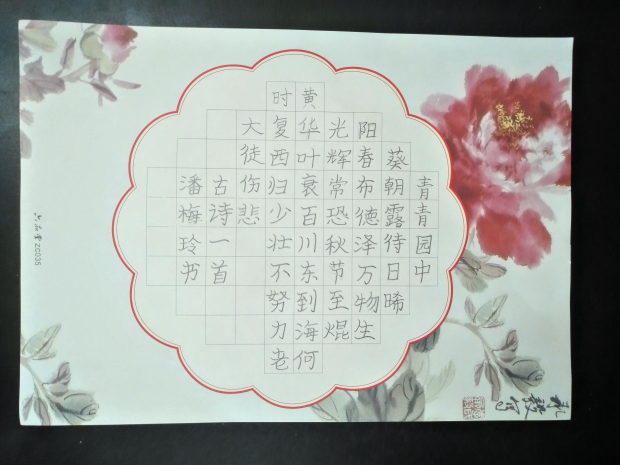 青青园中
葵朝露待日晞
阳春布德泽万物生
光辉常恐秋节至焜
黄华叶衰百川东到海何
时复西归少壮不努力老
大徒伤悲
古诗一首
潘梅玲书
六品堂 Z0035